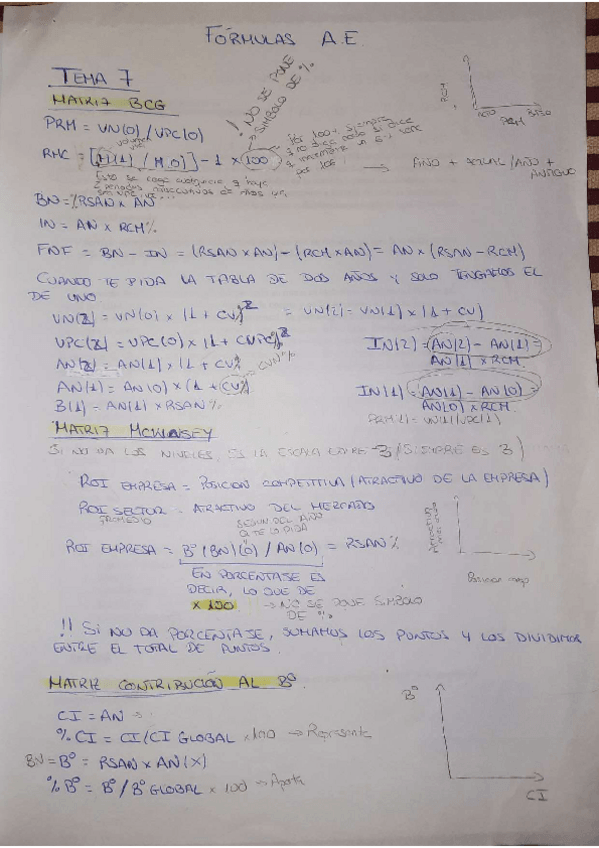 FÓRMULAS A.E.
TEMA 7
MATRIZ BCG
PRM = VN(0) / VPC(0)
RMC = [M(1) / M(0)] - 1 x 100
¡NO SE PONE
SIMBOLO DE %
→ AÑO + ACTUAL / AÑO +
ANTIGUO
RCM
ALTO PRM BAJO
BN = % RSAN x AN
IN = AN x RCM%
FNF = BN - IN = (RSAN x AN) - (RCM x AN) = AN x (RSAN - RCM)
CUANDO TE PIDA LA TABLA DE DOS AÑOS Y SOLO TENGAMOS EL
DE UNO
VN(2) = VN(0) x (1 + CV)² = VN(2) = VN(1) x (1 + CV)
VPC(2) = VPC(0) x (1 + CVPC%)²
AN(2) = AN(1) x (1 + CV%
CVN%
AN(1) = AN(0) x (1 + CV%)
B(1) = AN(1) x RSAN%
IN(2) = AN(2) - AN(1) =
AN(1) x RCM
IN(1) = AN(1) - AN(0) =
AN(0) x RCM
PRM(1) = VN(1)/VPC(1)
MATRIZ MCKINSEY
SI NO DA LOS NIVELES, ES LA ESCALA ENTRE 3 (SIEMPRE ES 3)
ROI EMPRESA = POSICION COMPETITIVA (ATRACTIVO DE LA EMPRESA)
ROI SECTOR = ATRACTIVO DEL MERCADO
PROMEDIO
SEGUN DEL AÑO
QUE TE LO PIDA
ROI EMPRESA = Bº (BN)(0) / AN(0) = RSAN%
EN PORCENTAJE ES
DECIR, LO QUE DE
x 100 → NO SE PONE SIMBOLO
DE %
Atractivo
mercado
Posicion
!! SI NO DA PORCENTAJE, SUMAMOS LOS PUNTOS Y LOS DIVIDIMOS
ENTRE EL TOTAL DE PUNTOS.
MATRIZ CONTRIBUCIÓN AL Bº
CI = AN
% CI = CI/CI GLOBAL x 100 → Representa
BN = Bº = RSAN x AN(X)
% Bº = Bº / Bº GLOBAL x 100 → Aporta
Bº
CI